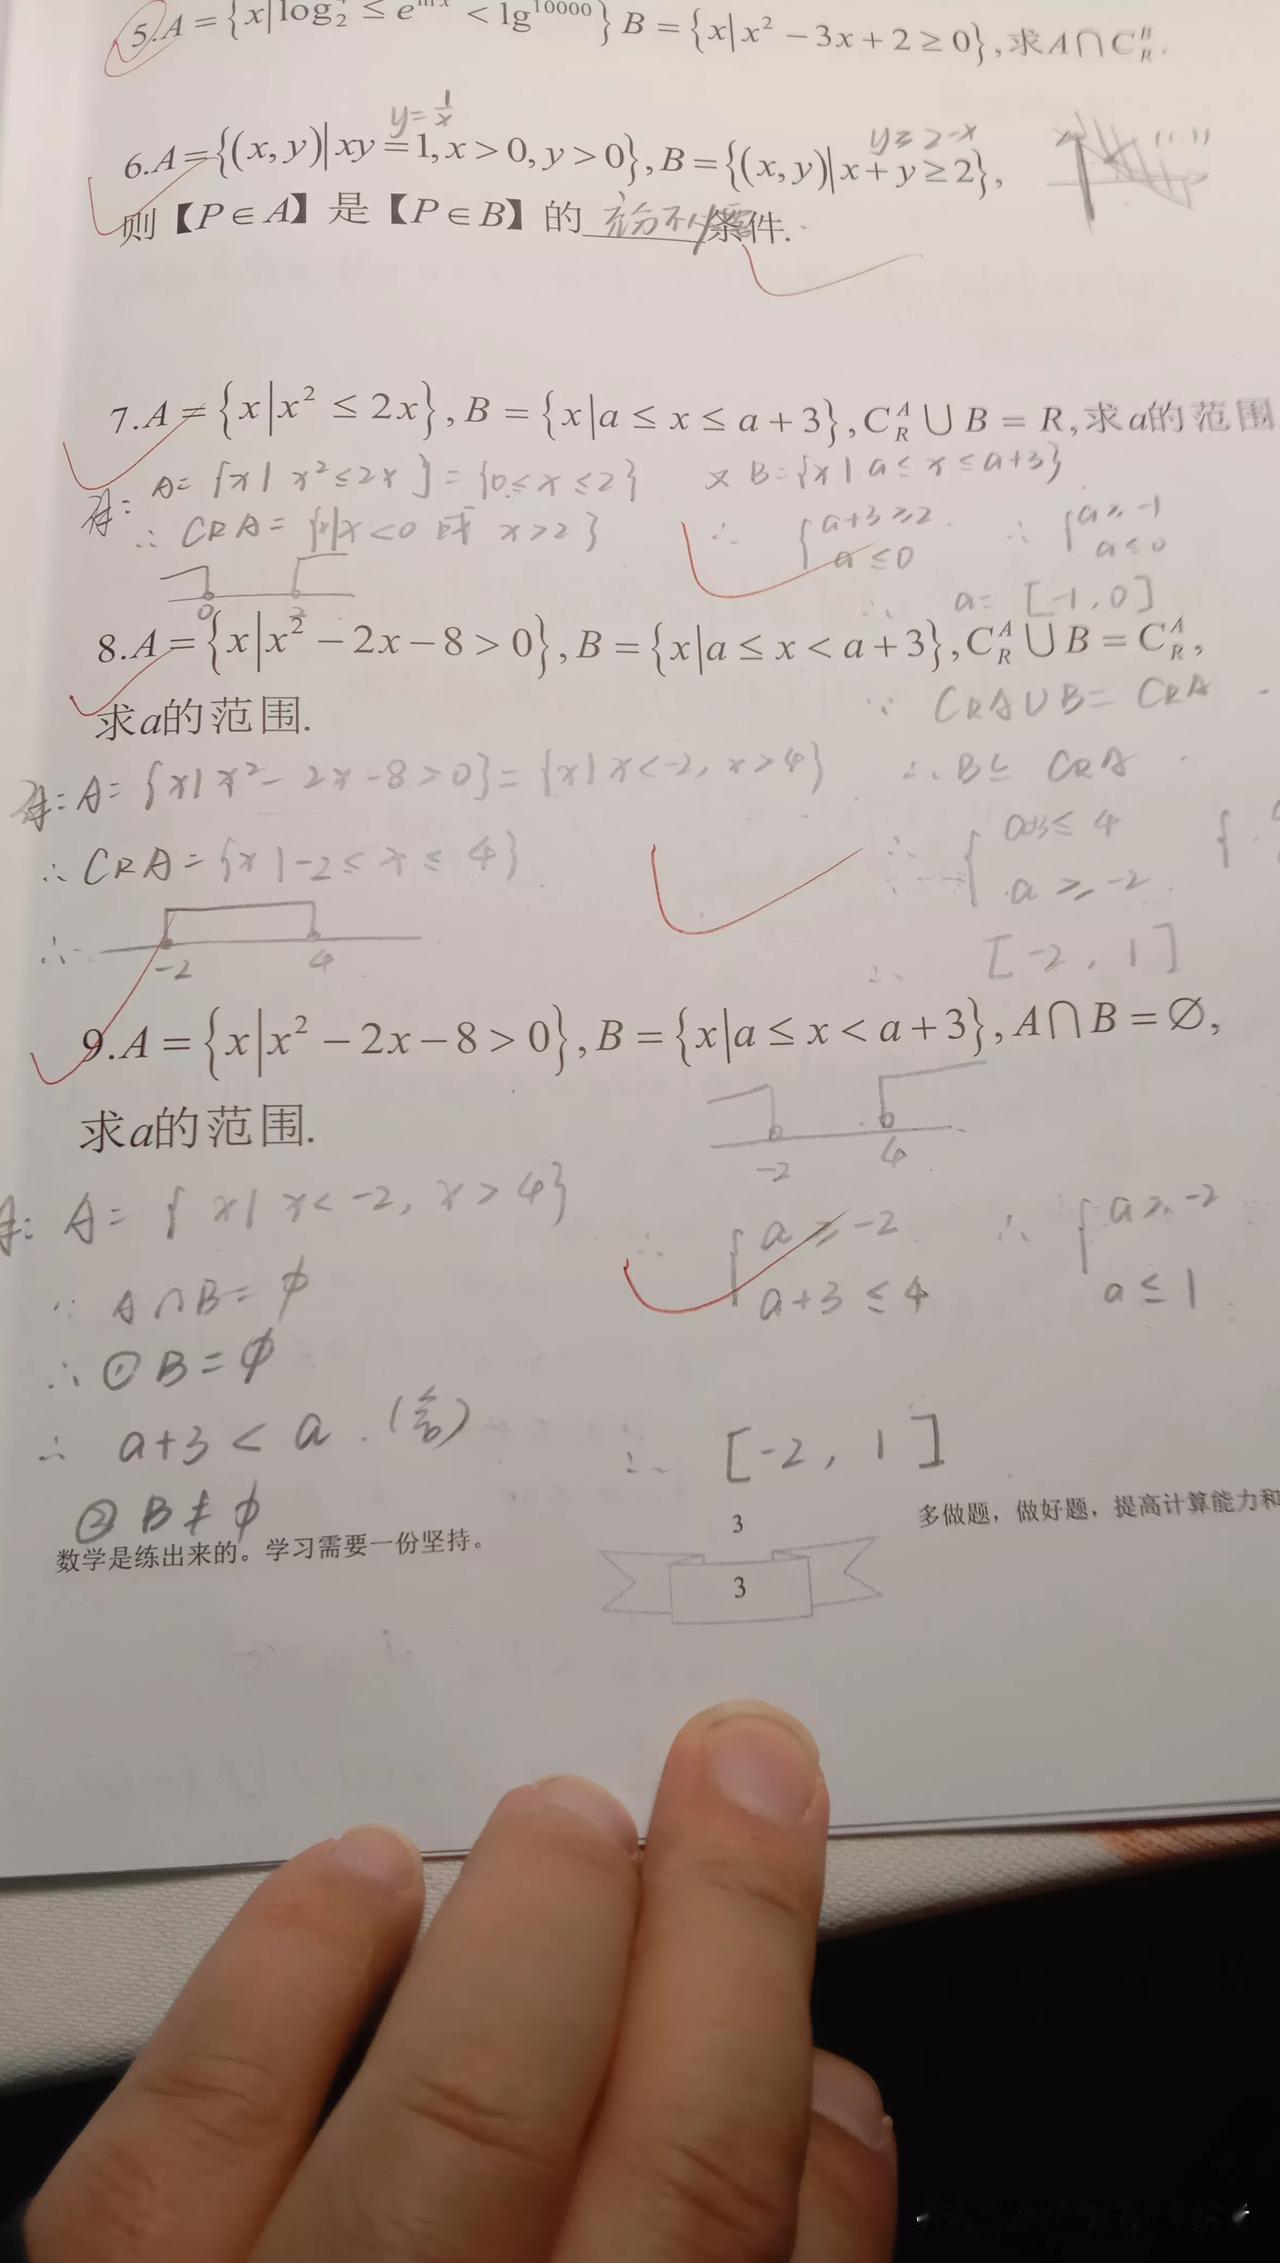 5.A={x|log₂ ≤ e^{lnx} < lg^{10000}} B={x|x²-3x+2≥0},求A∩C_R^B.
y=1/x
y≥2-x
(1,1)
6.A={(x,y)|xy=1,x>0,y>0},B={(x,y)|x+y≥2},
则【P∈A】是【P∈B】的 充分不必要 条件.
7.A={x|x²≤2x},B={x|a≤x≤a+3},C_R^A∪B=R,求a的范围
解: A={x|x²≤2x}={0≤x≤2} 又B={x|a≤x≤a+3}
∴ CRA={x|x<0 或 x>2} ∴ {a+3≥2 a≤0 ∴ {a≥-1 a≤0
0 2
∴ a=[-1,0]
8.A={x|x²-2x-8>0},B={x|a≤x<a+3},C_R^A∪B=C_R^A,
求a的范围.
∵ CRA∪B=CRA
解:A={x|x²-2x-8>0}={x|x<-2,x>4} ∴B⊆CRA
∴CRA={x|-2≤x≤4} ∴ {a+3≤4 a≥-2
∴ -2 4
∴ [-2,1]
9.A={x|x²-2x-8>0},B={x|a≤x<a+3},A∩B=∅,
求a的范围.
-2 4
解: A={x|x<-2,x>4} ∴ {a≥-2 a+3≤4 ∴ {a≥-2 a≤1
∵ A∩B=ϕ
∴ ①B=ϕ
∴ a+3<a.(舍)
∴ [-2,1]
②B≠ϕ
数学是练出来的。学习需要一份坚持。
3
多做题，做好题，提高计算能力和
3